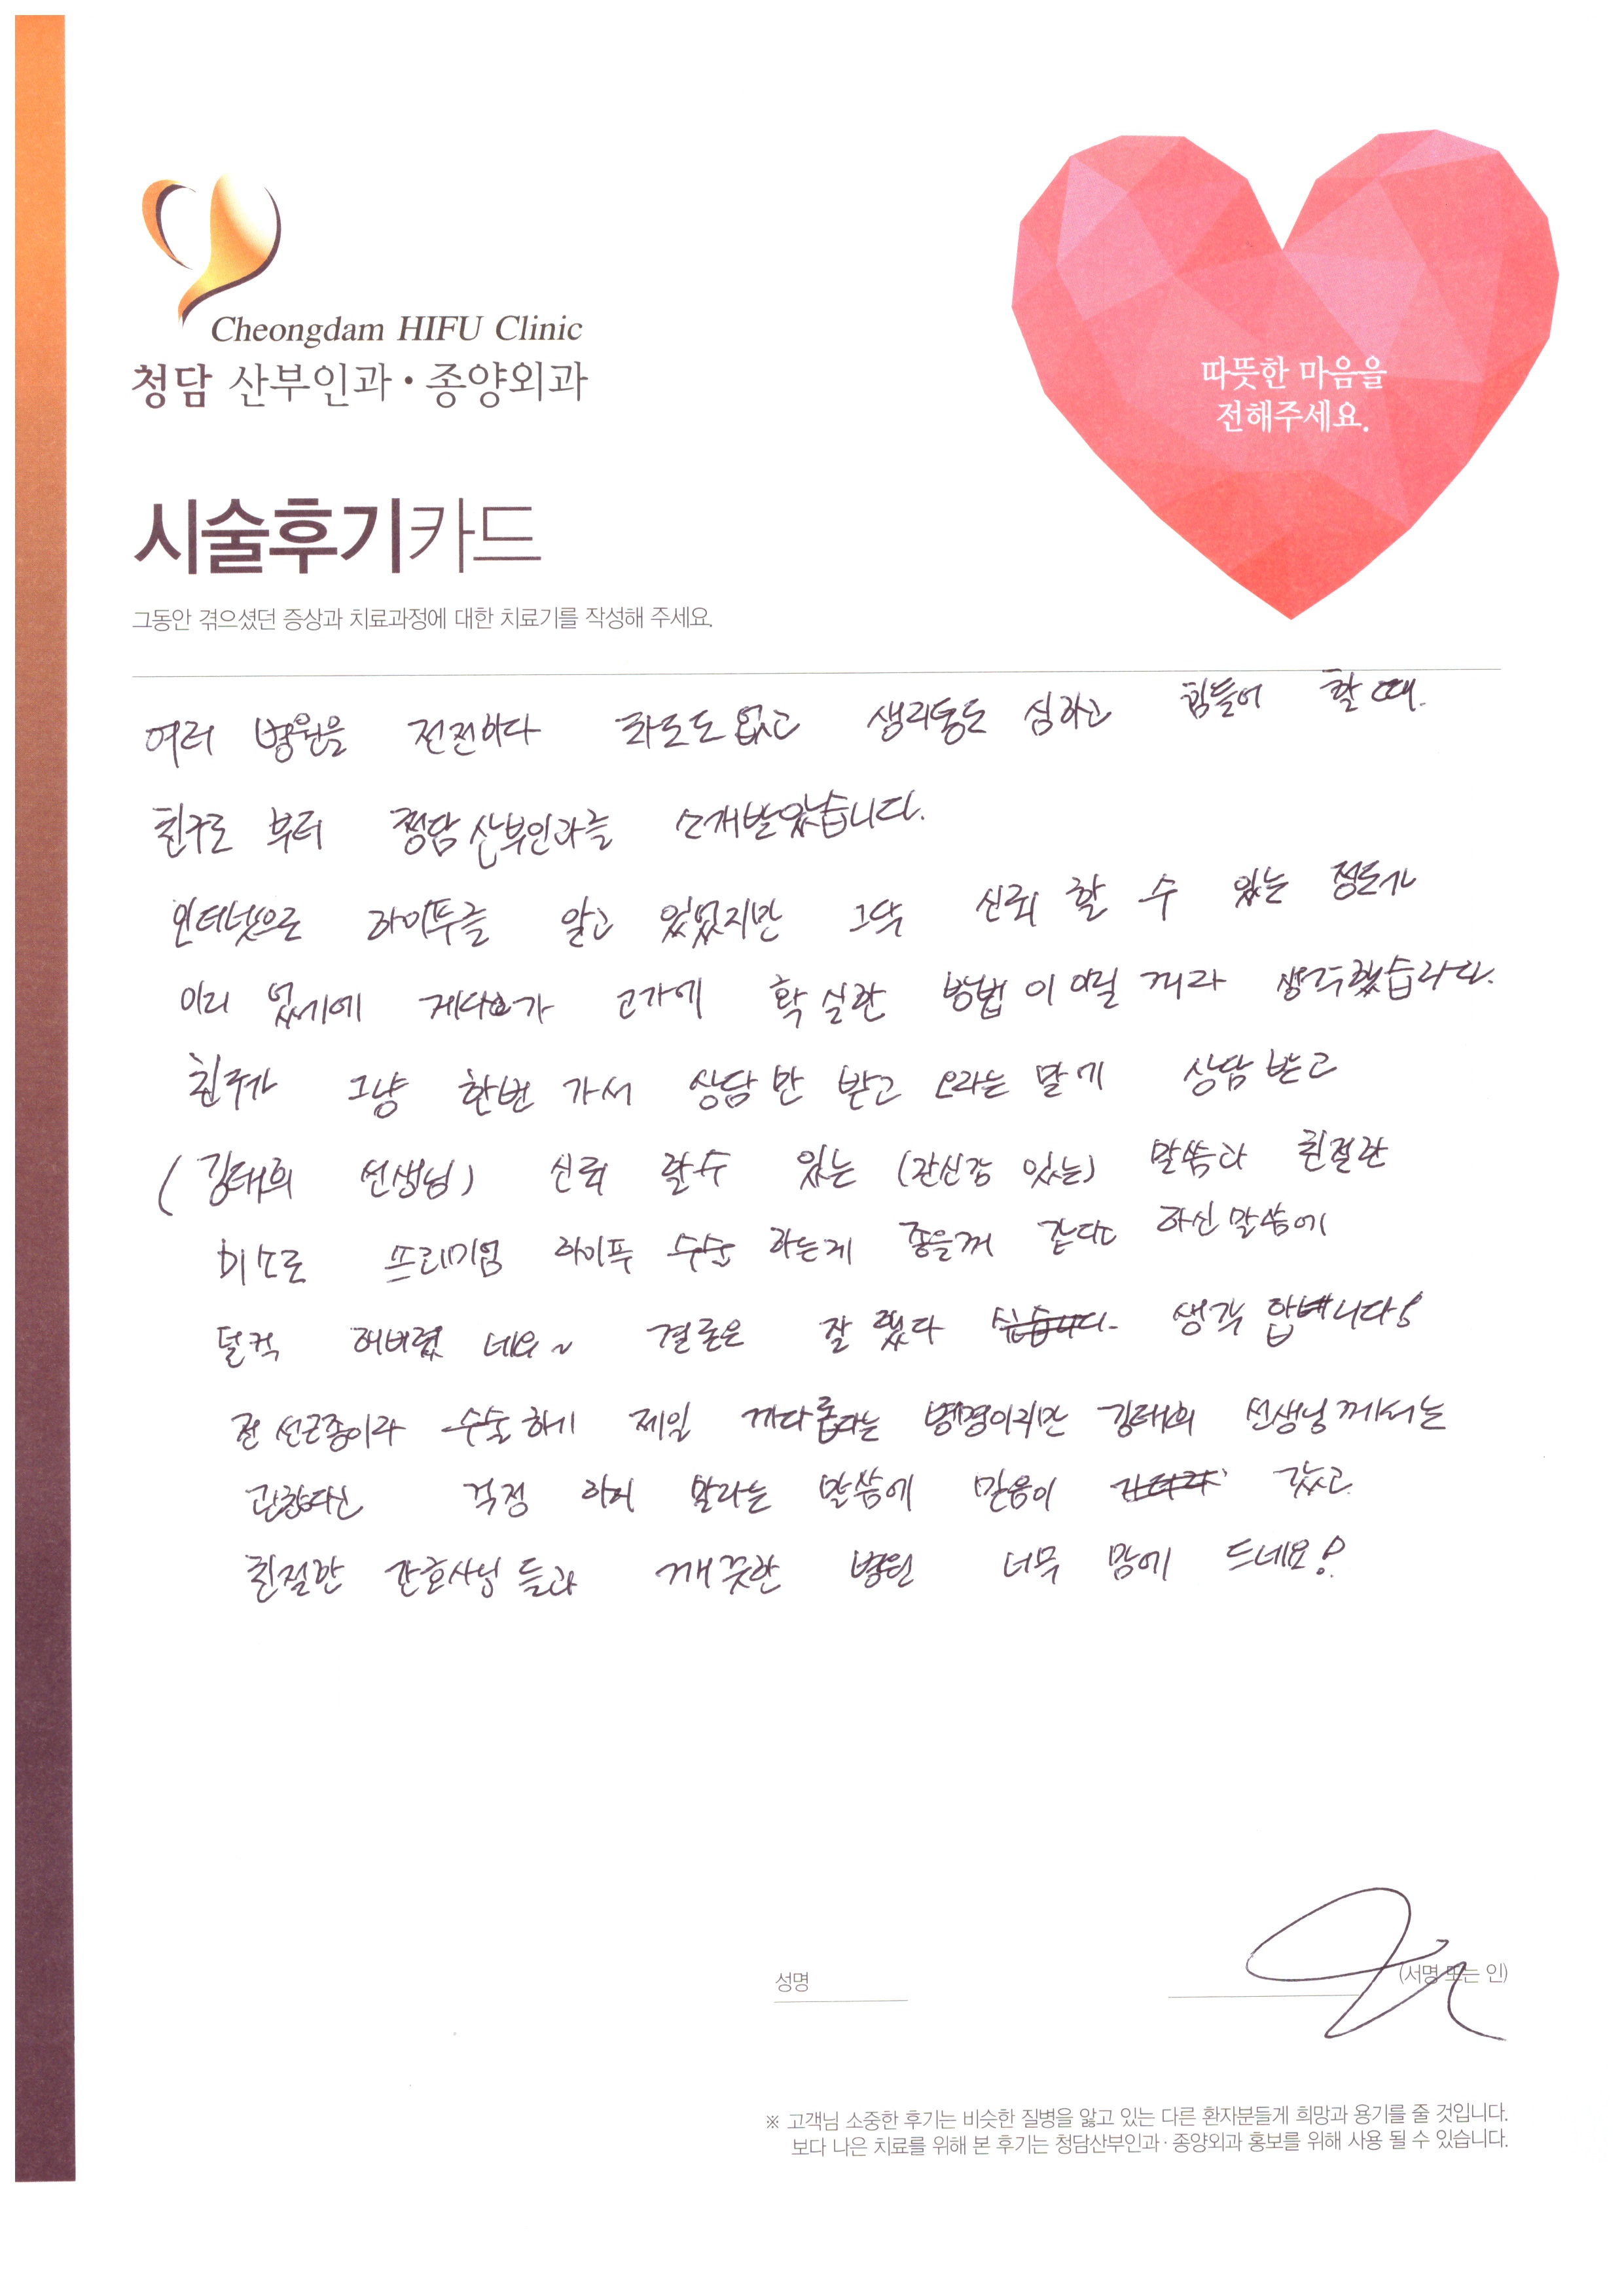 Cheongdam HIFU Clinic
청담 산부인과·종양외과
따뜻한 마음을
전해주세요.
시술후기카드
그동안 겪으셨던 증상과 치료과정에 대한 치료기를 작성해 주세요.
여러 병원을 전전하다 차도도 없고 생리통도 심하고 힘들어 할 때.
친구로 부터 청담 산부인과를 소개받았습니다.
인터넷으로 하이푸를 알고 있었지만 그닥 신뢰 할 수 있는 정도가
이리 없기에 게다가 고가에 확실한 방법이 아닐 꺼라 생각했습니다.
친구가 그냥 한번 가서 상담만 받고 오라는 말에 상담받고
(김태희 선생님) 신뢰 할수 있는 (자신감 있는) 말씀과 친절한
미소로 프리미엄 하이푸 수술 하는게 좋을꺼 같다 하신 말씀에
덜컥 해버렸 네요~ 결론은 잘 했다 생각 합니다!
전 선근종이라 수술하기 제일 까다롭다는 병명이지만 김태희 선생님께서는
괜찮다신 걱정 하지 말라는 말씀에 믿음이 갔고
친절한 간호사님 들과 깨끗한 병원 너무 맘에 드네요!
성명
(서명 또는 인)
※ 고객님 소중한 후기는 비슷한 질병을 앓고 있는 다른 환자분들게 희망과 용기를 줄 것입니다.
보다 나은 치료를 위해 본 후기는 청담산부인과·종양외과 홍보를 위해 사용 될 수 있습니다.